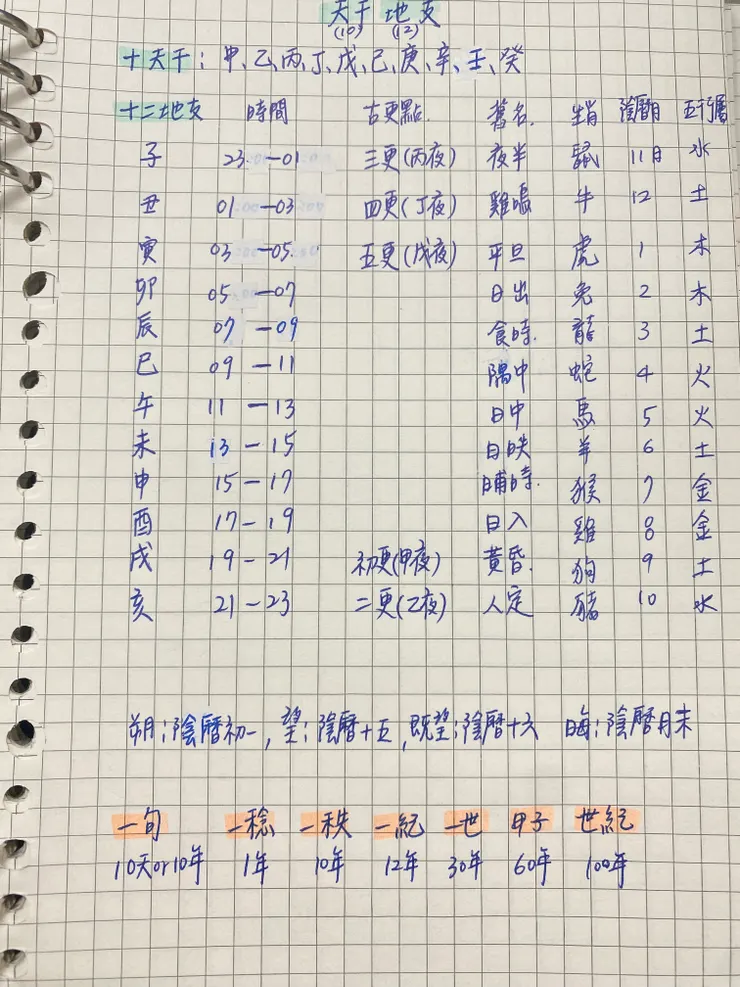 天干 地支
(10) (12)
十天干：甲、乙、丙、丁、戊、己、庚、辛、壬、癸
十二地支 時間 古更點. 舊名. 生肖 陰曆月 五行屬
子 23 — 01 三更(丙夜) 夜半 鼠 11月 水
丑 01 — 03 四更(丁夜) 雞鳴 牛 12 土
寅 03 — 05. 五更(戊夜) 平旦 虎 1 木
卯 05 — 07 日出 兔 2 木
辰 07 — 09 食時. 龍 3 土
巳 09 — 11 隅中 蛇 4 火
午 11 — 13 日中 馬 5 火
未 13 - 15 日昳 羊 6 土
申 15 - 17 晡時. 猴 7 金
酉 17 - 19 日入 雞 8 金
戌 19 - 21 初更(甲夜) 黃昏. 狗 9 土
亥 21 - 23 二更(乙夜) 人定 豬 10 水
朔：陰曆初一, 望：陰曆十五, 既望：陰曆十六 晦：陰曆月末
一旬 一稔 一秩 一紀 一世 甲子 世紀
10天or10年 1年 10年 12年 30年 60年 100年